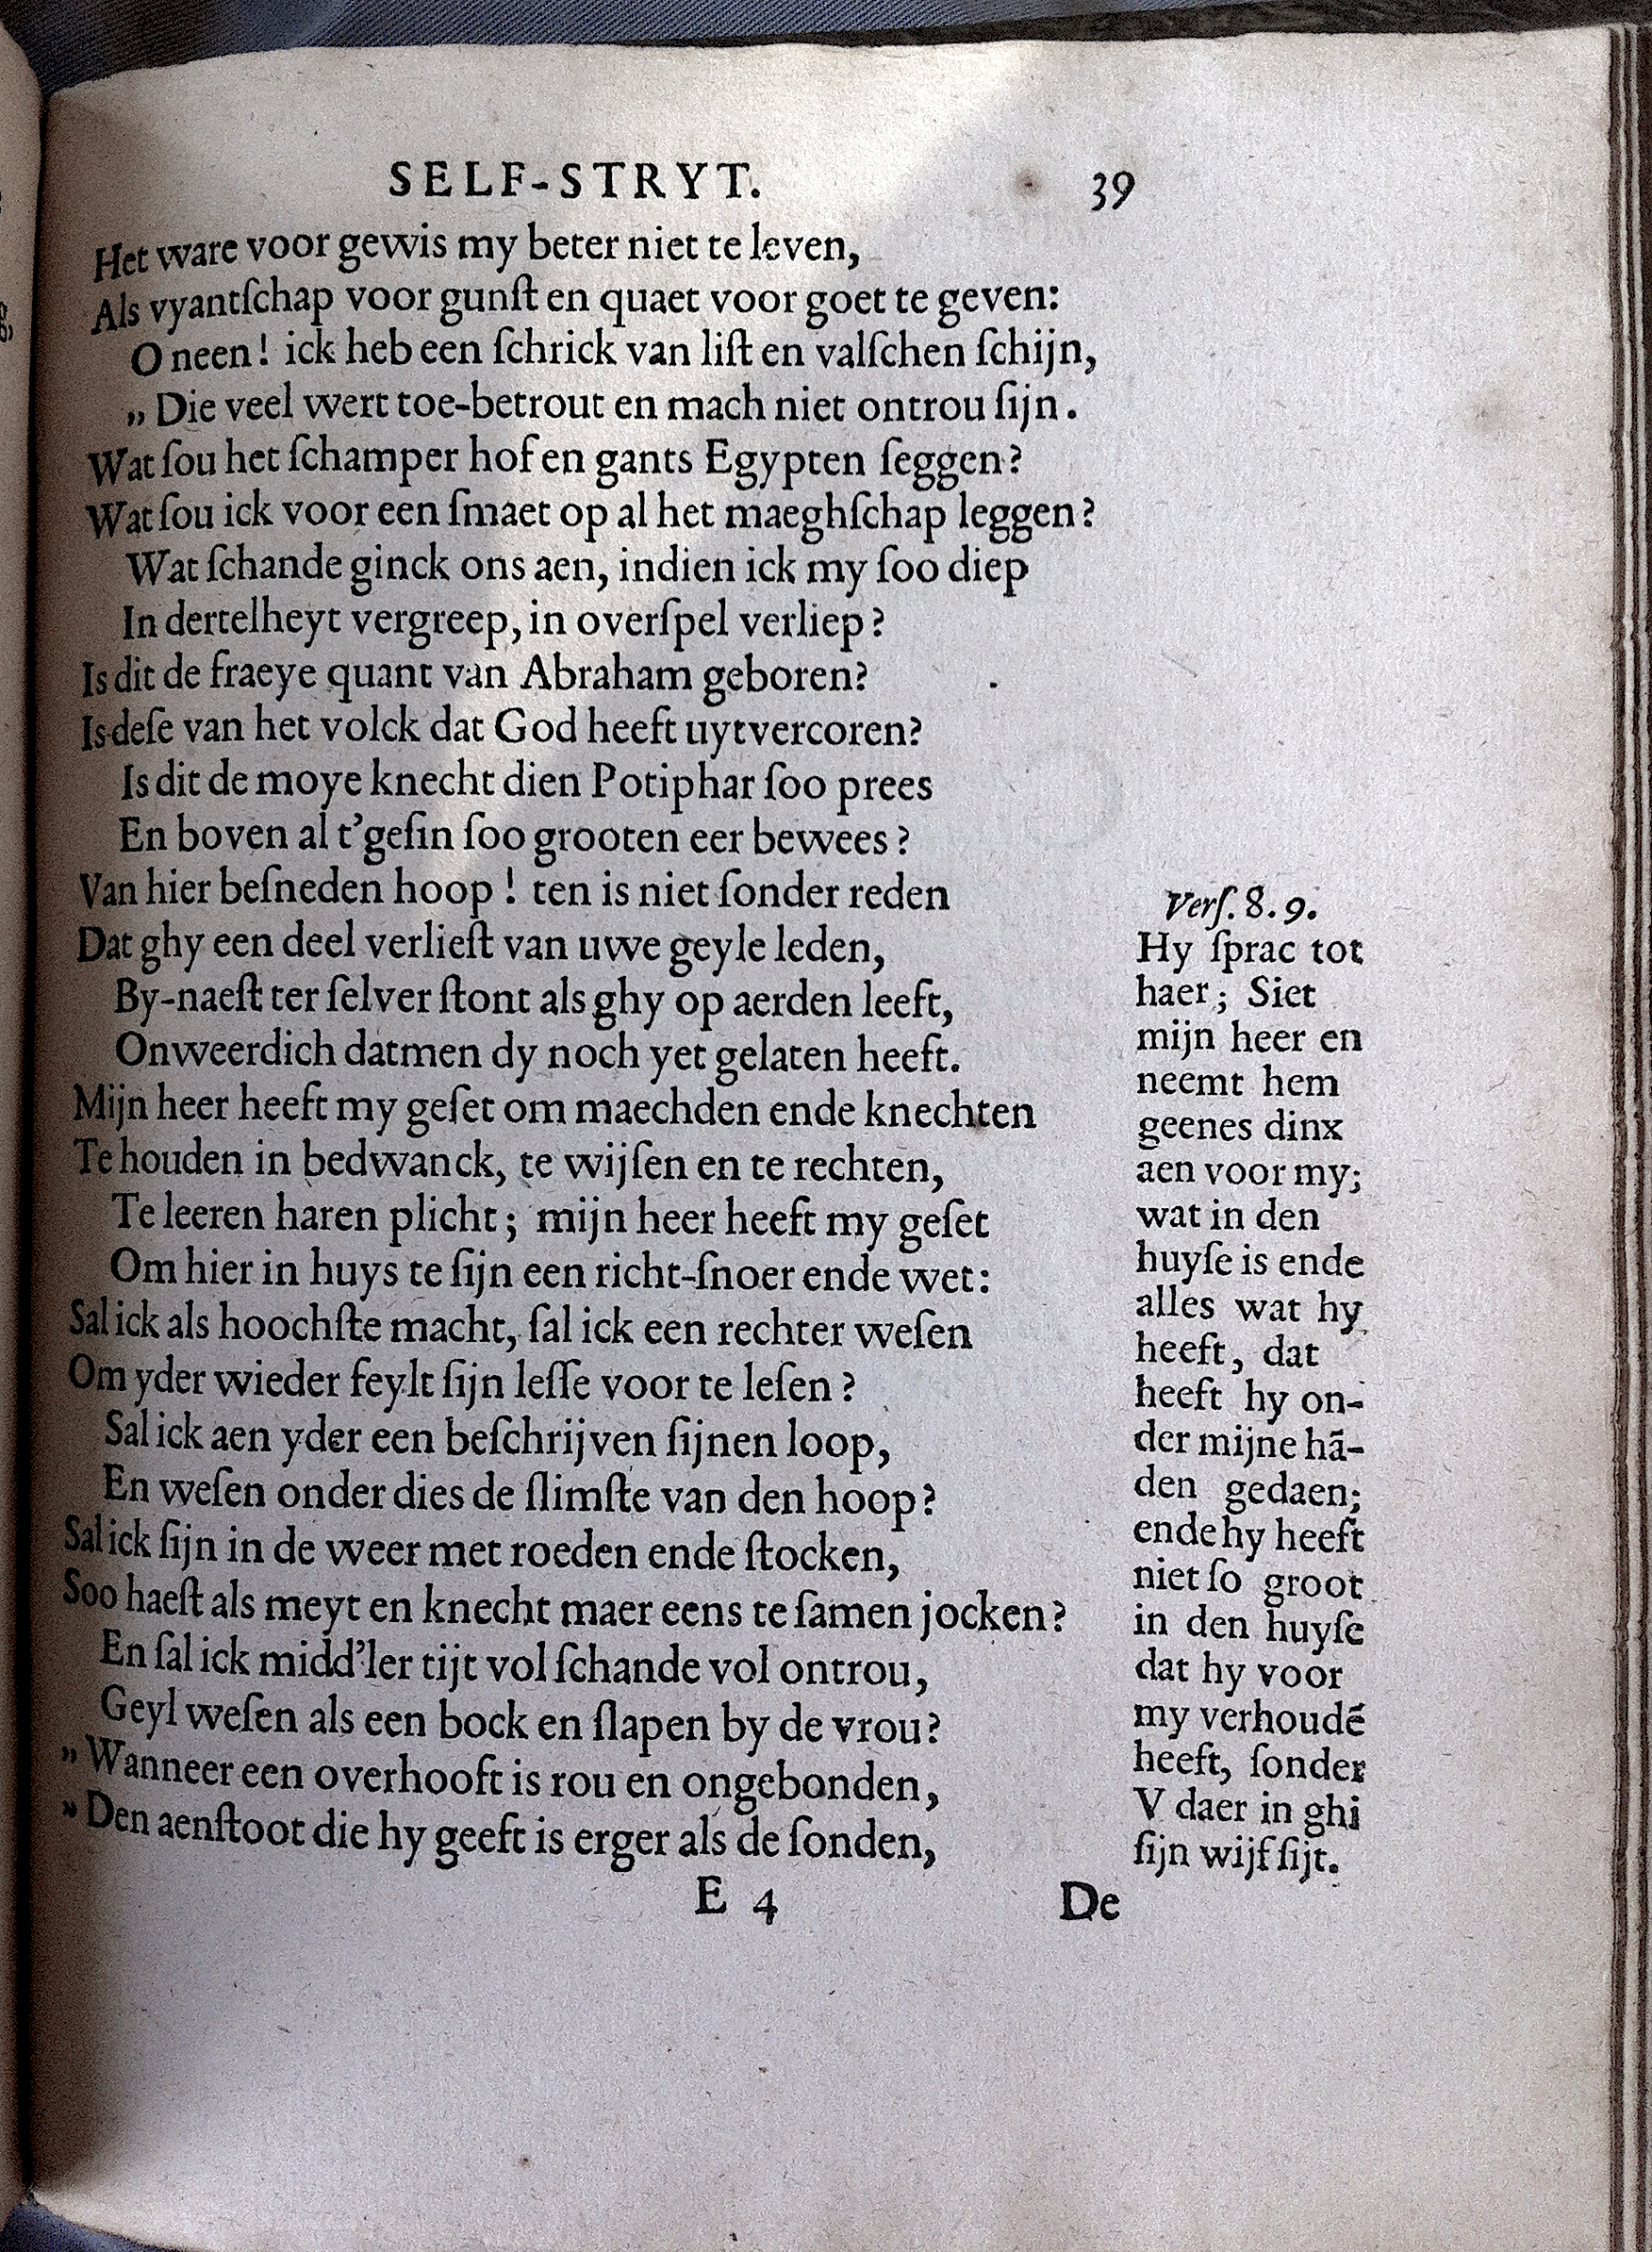 SELF-STRYT. 39
Het ware voor gewis my beter niet te leven,
Als vyantſchap voor gunſt en quaet voor goet te geven:
O neen! ick heb een ſchrick van liſt en valſchen ſchijn,
„ Die veel wert toe-betrout en mach niet ontrou ſijn.
Wat ſou het ſchamper hof en gants Egypten ſeggen?
Wat ſou ick voor een ſmaet op al het maeghſchap leggen?
Wat ſchande ginck ons aen, indien ick my ſoo diep
In dertelheyt vergreep, in overſpel verliep?
Is dit de fraeye quant van Abraham geboren?
Is deſe van het volck dat God heeft uytvercoren?
Is dit de moye knecht dien Potiphar ſoo prees
En boven al t'geſin ſoo grooten eer bewees?
Van hier beſneden hoop! ten is niet ſonder reden
Dat ghy een deel verlieſt van uwe geyle leden,
By-naeſt ter ſelver ſtont als ghy op aerden leeft,
Onweerdich datmen dy noch yet gelaten heeft.
Mijn heer heeft my geſet om maechden ende knechten
Te houden in bedwanck, te wijſen en te rechten,
Te leeren haren plicht; mijn heer heeft my geſet
Om hier in huys te ſijn een richt-ſnoer ende wet:
Sal ick als hoochſte macht, ſal ick een rechter weſen
Om yder wieder feylt ſijn leſſe voor te leſen?
Sal ick aen yder een beſchrijven ſijnen loop,
En weſen onder dies de ſlimſte van den hoop?
Sal ick ſijn in de weer met roeden ende ſtocken,
Soo haeſt als meyt en knecht maer eens te ſamen jocken?
En ſal ick midd'ler tijt vol ſchande vol ontrou,
Geyl weſen als een bock en ſlapen by de vrou?
„ Wanneer een overhooft is rou en ongebonden,
„ Den aenſtoot die hy geeft is erger als de ſonden,
Verſ. 8. 9.
Hy ſprac tot
haer; Siet
mijn heer en
neemt hem
geenes dinx
aen voor my;
wat in den
huyſe is ende
alles wat hy
heeft, dat
heeft hy on-
der mijne hã-
den gedaen;
ende hy heeft
niet ſo groot
in den huyſe
dat hy voor
my verhoudẽ
heeft, ſonder
V daer in ghi
ſijn wijf ſijt.
E 4 De